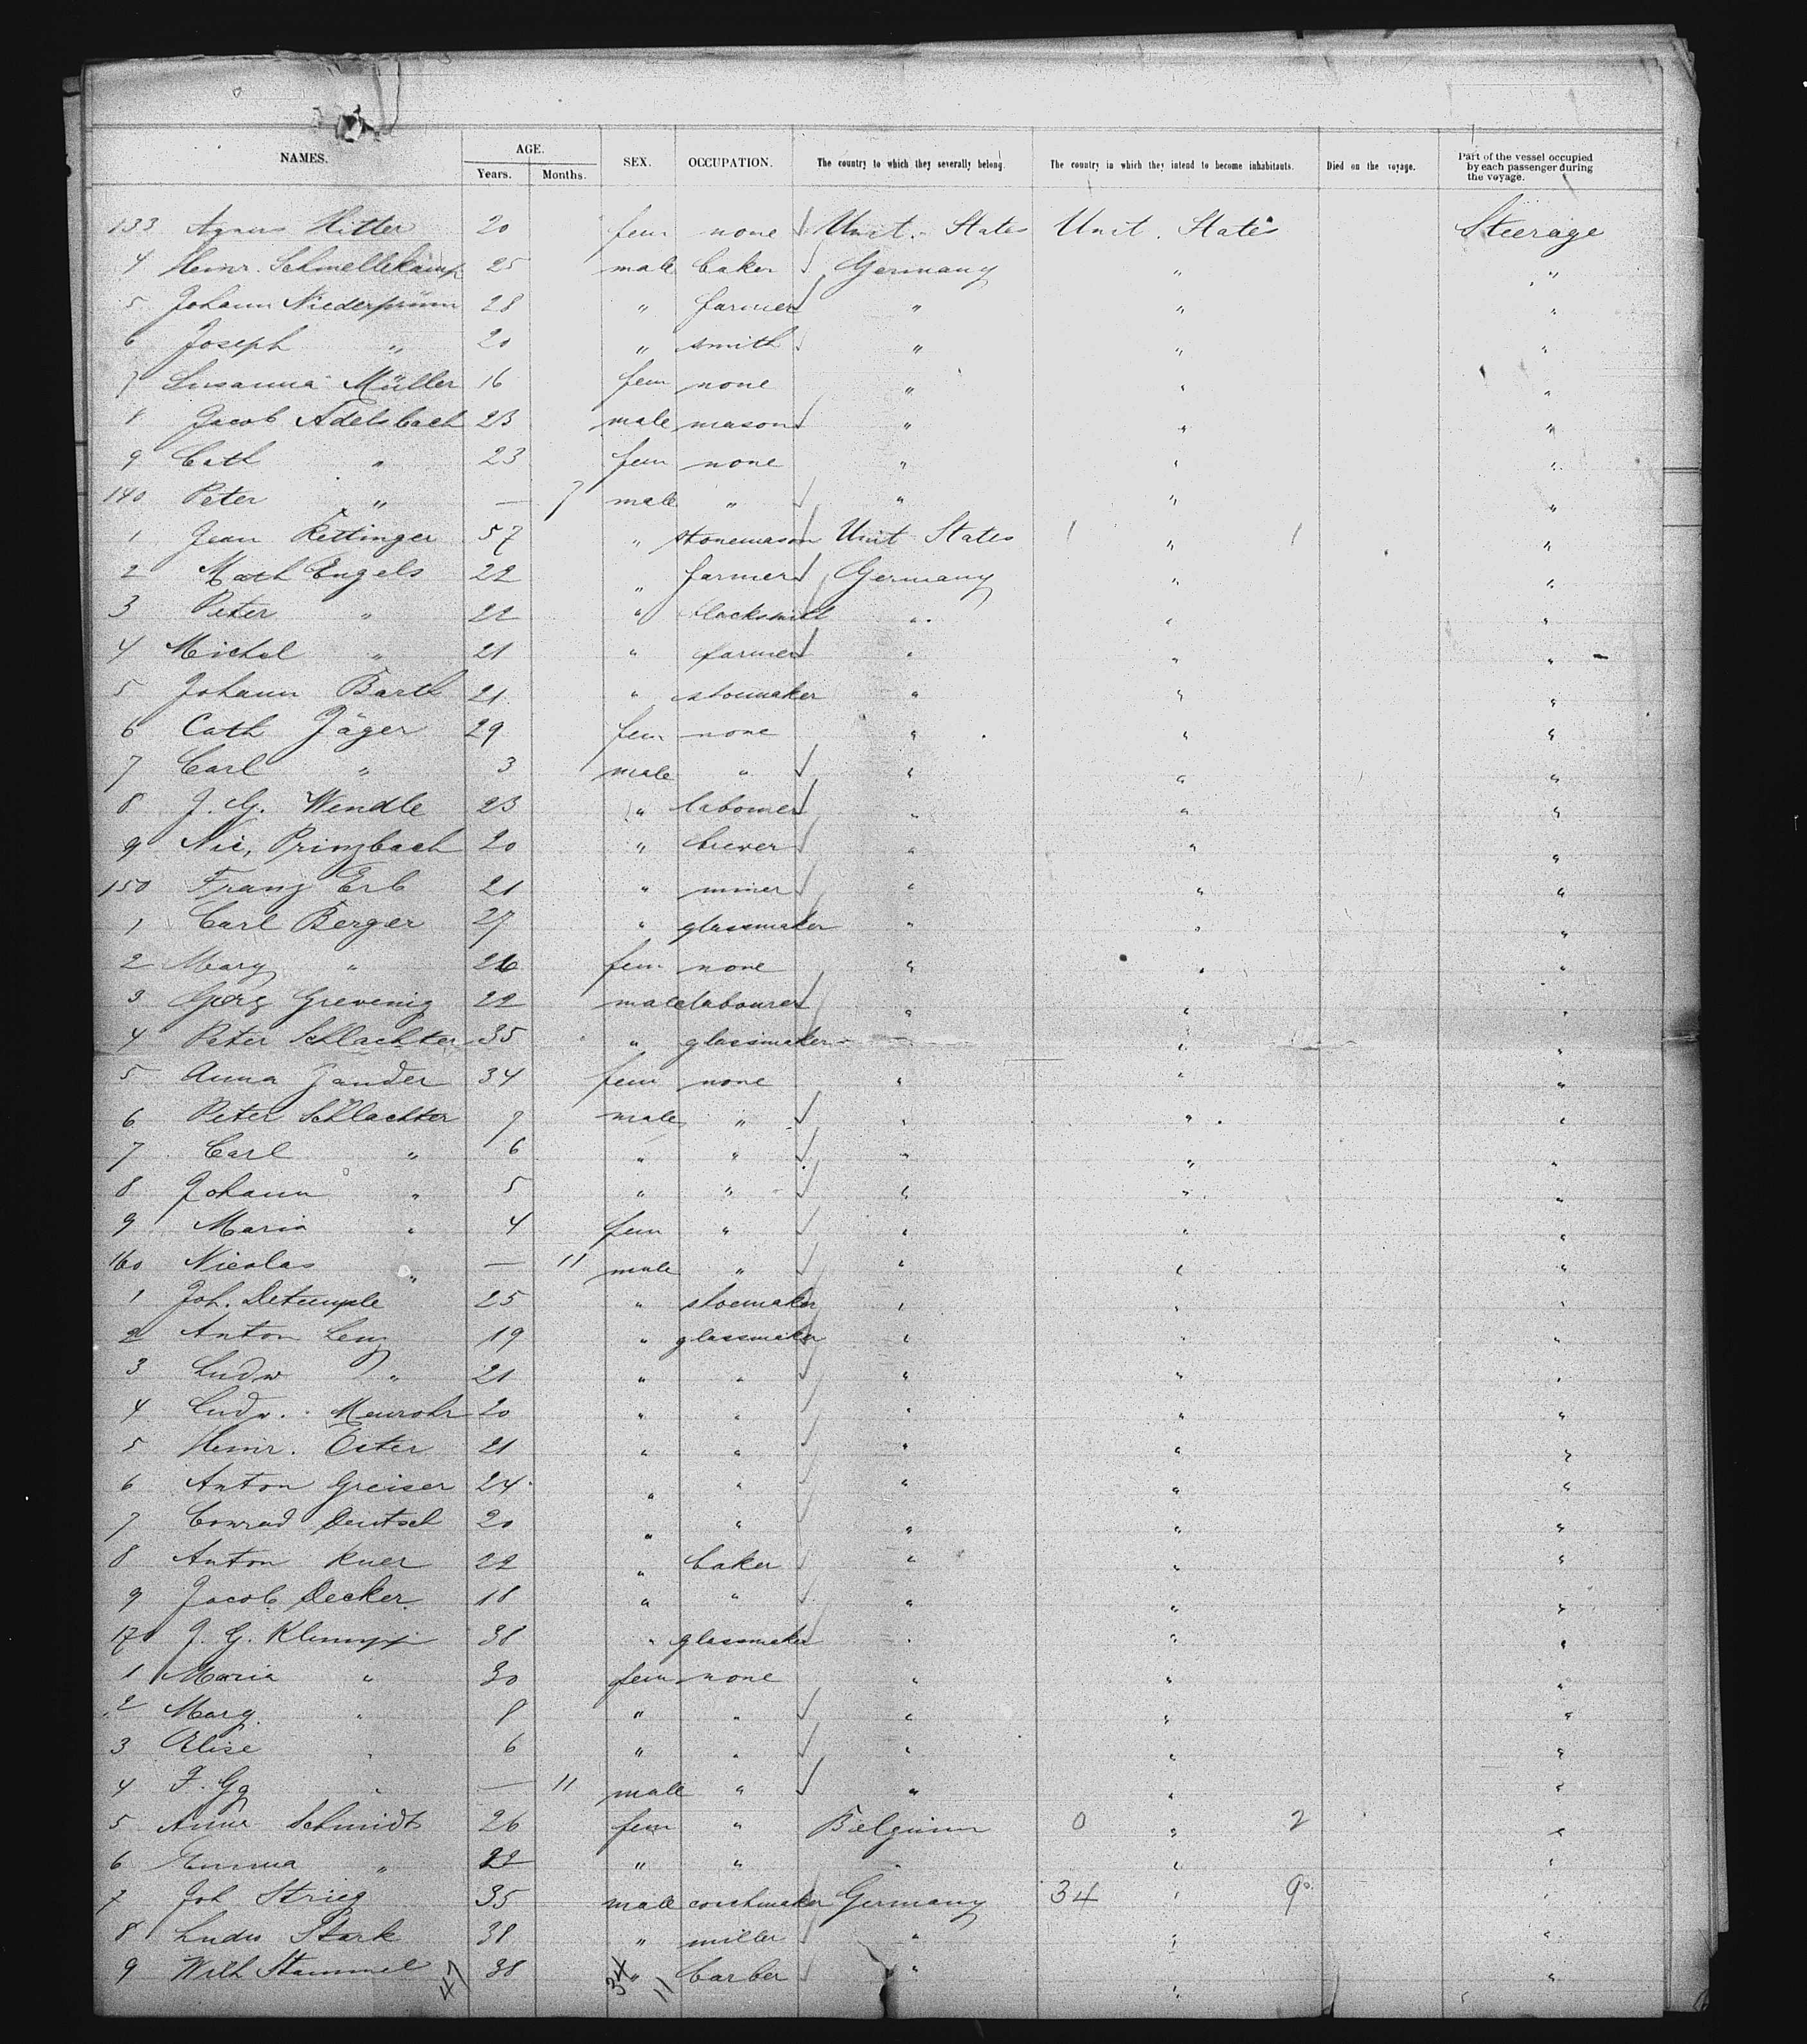 NAMES. AGE. Years. Months. SEX. OCCUPATION. The country to which they severally belong. The country in which they intend to become inhabitants. Died on the voyage. Part of the vessel occupied by each passenger during the voyage.
133 Agnes Hitter 20 fem none Unit. States Unit. States Steerage
4 Heinr. Schmellekamp 25 male baker Germany " "
5 Johann Niederprüm 28 " farmer " " "
6 Joseph " 20 " smith " " "
7 Susanna Müller 16 fem none " " "
8 Jacob Adelsbach 23 male mason " " "
9 Cath " 23 fem none " " "
140 Peter " — 7 male " " " "
1 Jean Rettinger 57 " stonemason Unit States 1 " 1 "
2 Math Engels 22 " farmer Germany " "
3 Peter " 22 " blacksmith " " "
4 Michel " 21 " farmer " " "
5 Johann Barth 21 " shoemaker " " "
6 Cath Jäger 29 fem none " " "
7 Carl " 3 male " " " "
8 J. G. Wendle 23 " labourer " " "
9 Nic, Primbach 20 " brewer " " "
150 Franz Erb 21 " miner " " "
1 Carl Berger 27 " glassmaker " " "
2 Mary " 26 fem none " " "
3 Georg Grevenig 22 male labourer " " "
4 Peter Schlachter 35 " glassmaker " " "
5 Anna Zander 34 fem none " " "
6 Peter Schlachter 7 male " " " "
7 Carl " 6 " " " " "
8 Johann " 5 " " " " "
9 Maria " 4 fem " " " "
160 Nicolas " — 11 male " " " "
1 Joh. Detemple 25 " shoemaker " " "
2 Anton Lenz 19 " glassmaker " " "
3 Ludw " 21 " " " " "
4 Ludw. Meurohr 20 " " " " "
5 Heinr. Oster 21 " " " " "
6 Anton Greiser 24 " " " " "
7 Conrad Deutsch 20 " " " " "
8 Anton Kuer 22 " baker " " "
9 Jacob Decker 18 " " " " "
170 J. G. Klumpp 38 " glassmaker " " "
1 Maria " 30 fem none " " "
2 Marg. " 8 " " " " "
3 Elise " 6 " " " " "
4 F. Gg " — 11 male " " " "
5 Anna Schmidt 26 fem " Belgium 0 " 2 "
6 Emma " 22 " " " " "
7 Joh Strieg 35 male coachmaker Germany 34 " 9 "
8 Ludw Stark 38 " miller " " "
9 Wilh Stammel 38 " barber " " "
47 34 11